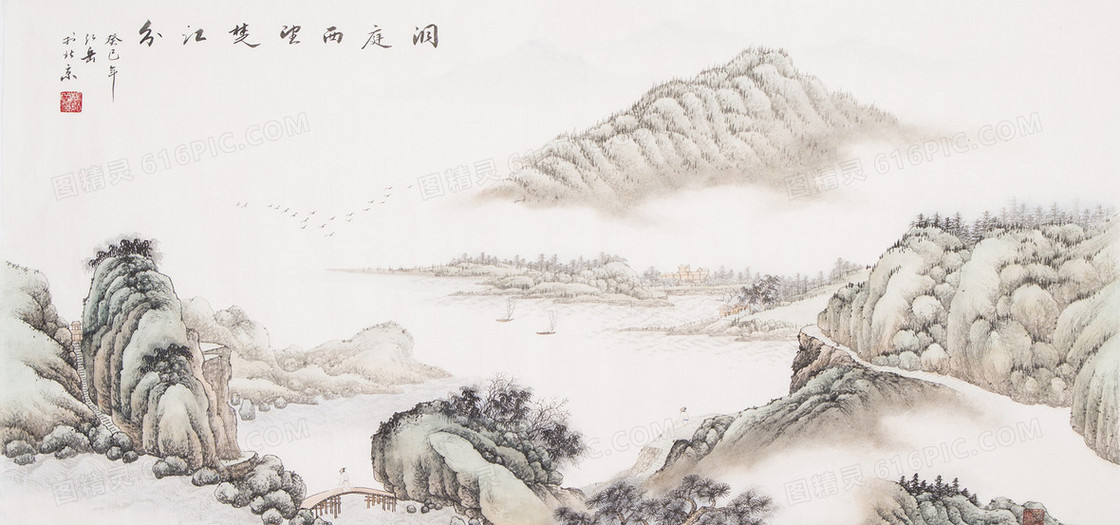 洞庭西望楚江分
癸巳年
岳
於北京
图精灵 616PIC.COM
图精灵 616PIC.COM
图精灵 616PIC.COM
616PIC.COM
图精灵 616PIC.COM
图精灵 616PIC.COM